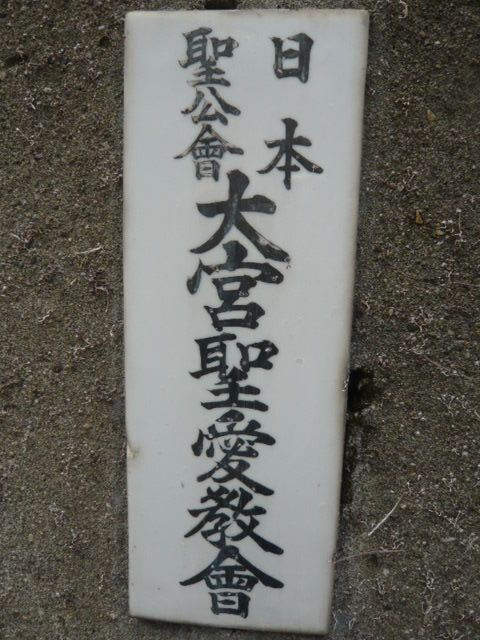 日本
聖公會
大宮聖愛教會